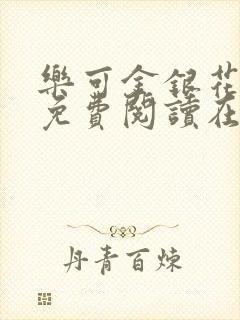 樂可金銀花
免費閱讀在
丹青百煉